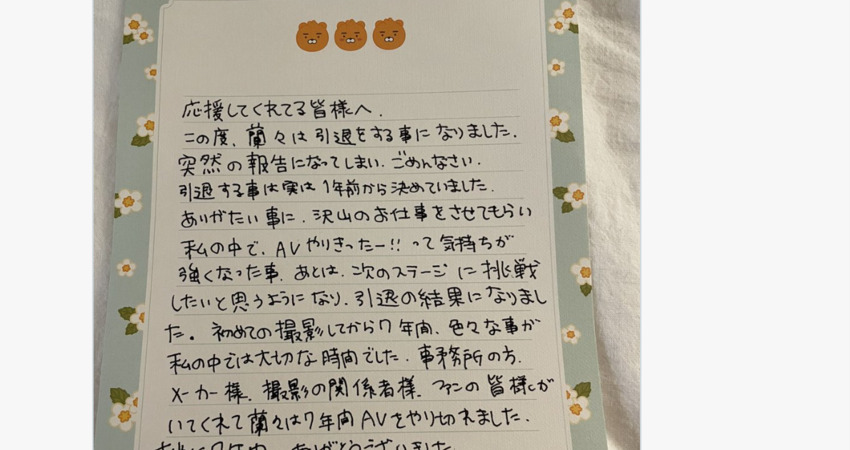 応援してくれてる皆様へ.
この度、蘭々は引退をする事になりました.
突然の報告になってしまい、ごめんなさい.
引退する事は実は1年前から決めていました.
ありがたい事に、沢山のお仕事をさせてもらい
私の中で、AVやりきったー!!って気持ちが
強くなった事、あとは、次のステージに挑戦
したいと思うようになり、引退の結果になりまし
た。初めての撮影してから7年間、色々な事が
私の中では大切な時間でした、事務所の方、
メーカー様、撮影の関係者様、ファンの皆様が
いてくれて蘭々は7年間AVをやり切れました.
ありがとうございました